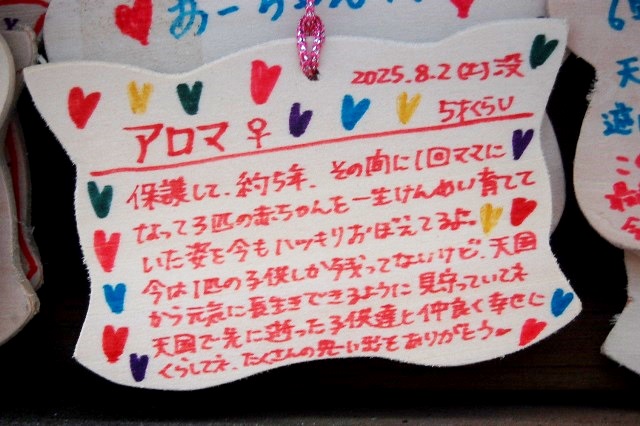 あーちゃん
2025.8.2(土)没
アロマ♀ 5才くらい
保護して、約5年、その間に1回ママに
なって3匹の赤ちゃんを一生けんめい育てて
いた姿を今もハッキリおぼえてるよ。
今は1匹の子供しか残ってないけど、天国
から元気に長生きできるように見守っていてネ
天国で先に逝った子供達と仲良く幸せに
くらしてネ、たくさんの思い出をありがとう〜
6
天